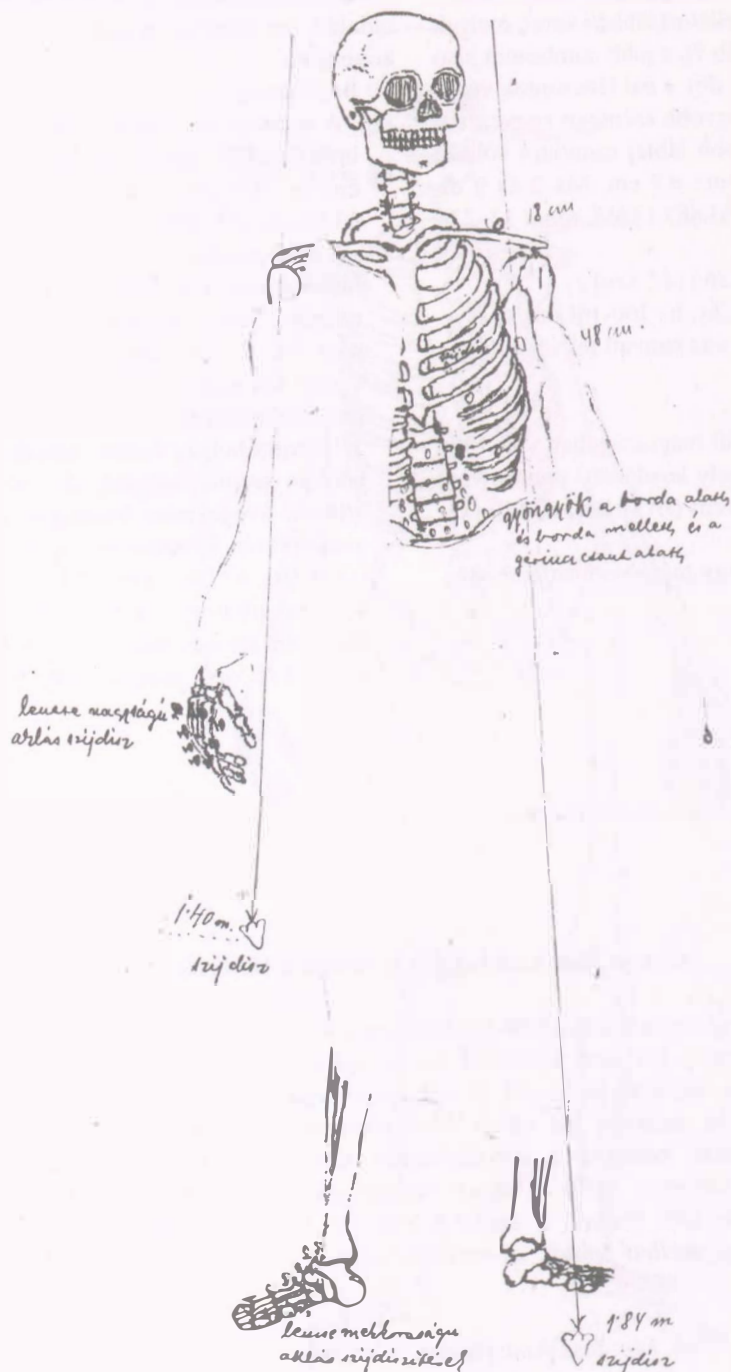 18 cm
48 cm.
gyöngyök a borda alatt
és borda mellett, és a
gerinc csont alatt
lencse nagyságú
atlás szijdisz
1·40 m.
szijdisz
lencse mekkoraságu
atlás szijdiszitések
1·84 m
szijdisz